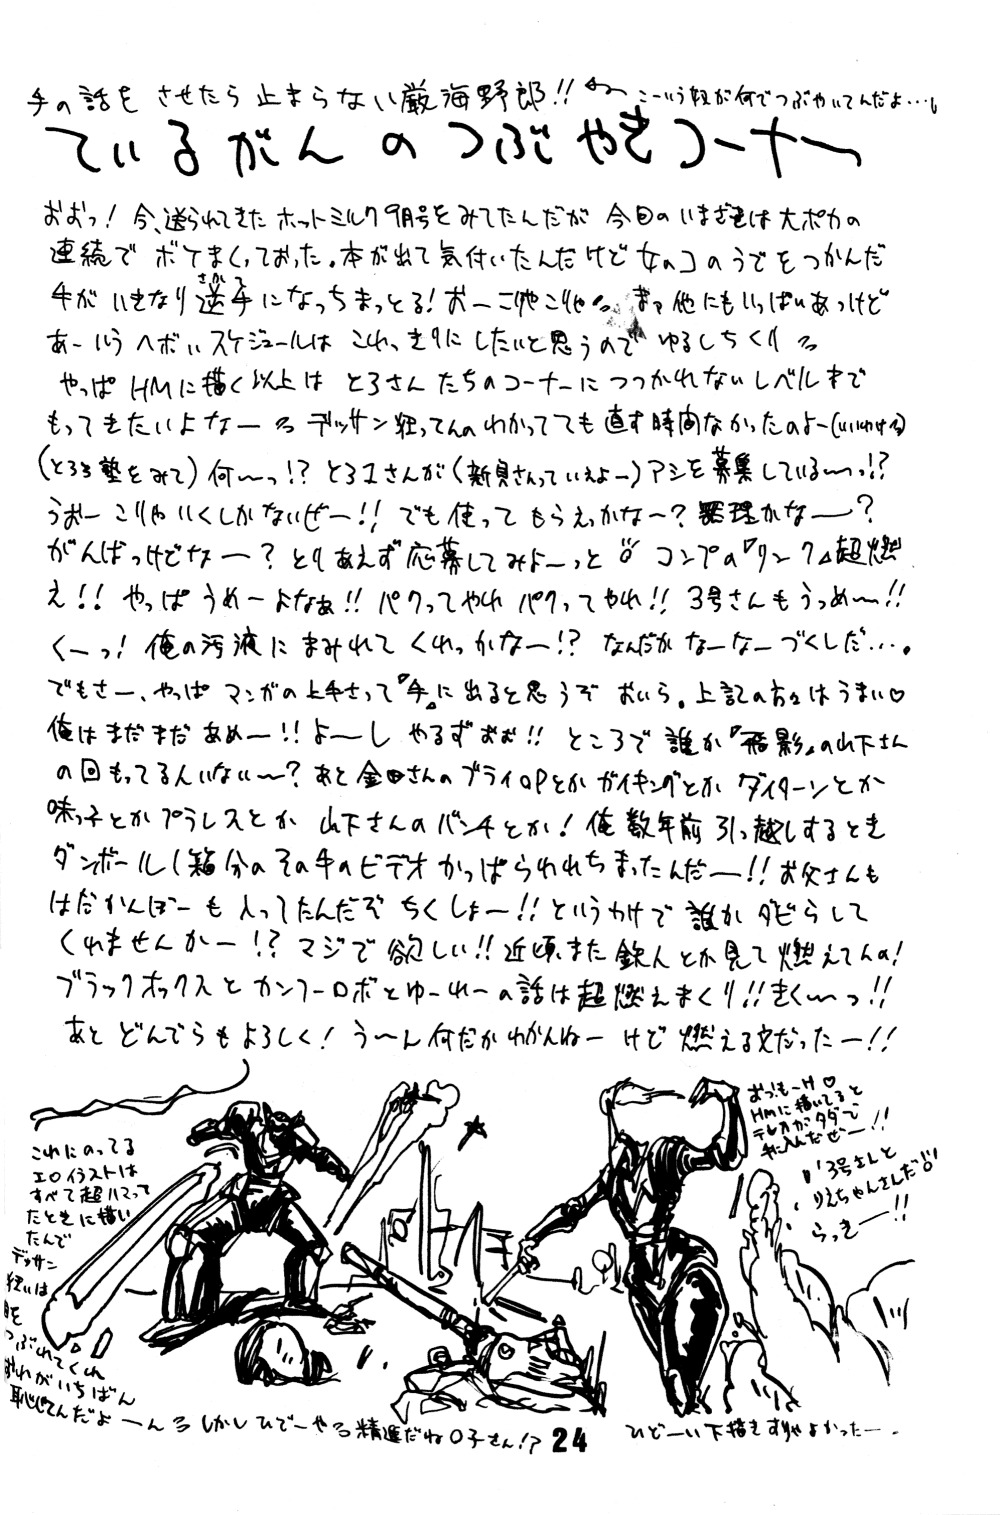 手の話をさせたら止まらない厳海野郎!! こーいう奴が何でつぶやいてんだよ…。
ているがんのつぶやきコーナー
おおっ!今、送られてきたホットミルク9月号をみてたんだが今回のいまざきは大ポカの
連続でボケまくっておった。本が出て気付いたんだけど女のコのうでをつかんだ
手がいきなり逆手になっちまっとる!おーこりゃこりゃ まァ他にもいっぱいあっけど
さかて
あーいうヘボいスケジュールはこれっきりにしたいと思うのでゆるしちくり
やっぱHMに描く以上はとろさんたちのコーナーにつつかれないレベルまで
もってきたいよなー デッサン狂ってんのわかってても直す時間なかったのよー(いいわける)
(とろろ塾をみて)何〜っ!?とろ1さんが(新貝さんっていえよー)アシを募集している〜っ!?
うおーこりゃいくしかないぜー!!でも使ってもらえっかな〜?無理かなー?
がんばっけどなー?とりあえず応募してみよーっと コンプの『リンク』超燃
え!!やっぱうめーよなぁ!!パクってやれパクってやれ!!3号さんもうっめ〜!!
くーっ!俺の汚液にまみれてくれっかなー!?なんだかなーなーづくしだ…。
でもさー、やっぱマンガの上手さって『手』に出ると思うぞおいら。上記の方々はうまい♡
俺はまだまだあめー!!よ〜しやるずぉぉ!!ところで誰か『飛影』の山下さん
の回もってる人いない〜?あと金田さんのブライOPとかガイキングとかダイターンとか
味っ子とかプラレスとか山下さんのバンチとか!俺数年前引っ越しするとき
ダンボール1箱分のその手のビデオかっぱらわれちまったんだー!!お父さんも
はだかんぼーも入ってたんだぞちくしょー!!というわけで誰かダビらして
くれませんかー!?マジで欲しい!!近頃また鉄人とか見て燃えてんの!
ブラックオックスとカンフーロボとゆーれーの話は超燃えまくり!!きく〜っ!!
あとどんでらもよろしく!う〜ん何だかわかんねーけど燃える文だったー!!
これにのってる
エロイラストは
すべて超ハマって
たときに描い
たんで
デッサン
狂いは
目を
つぶれてくれ
おれがいちばん
恥じてんだよーんる しかしひでーやる精進だねO子さん!?
おっ!もーH♡
HMに描いてると
テレカがタダで
手に入んだぜー!!
3号さんと
りえちゃんさんだ!!
らっきー!!
24
ひどーい下描きすりゃよかったー.